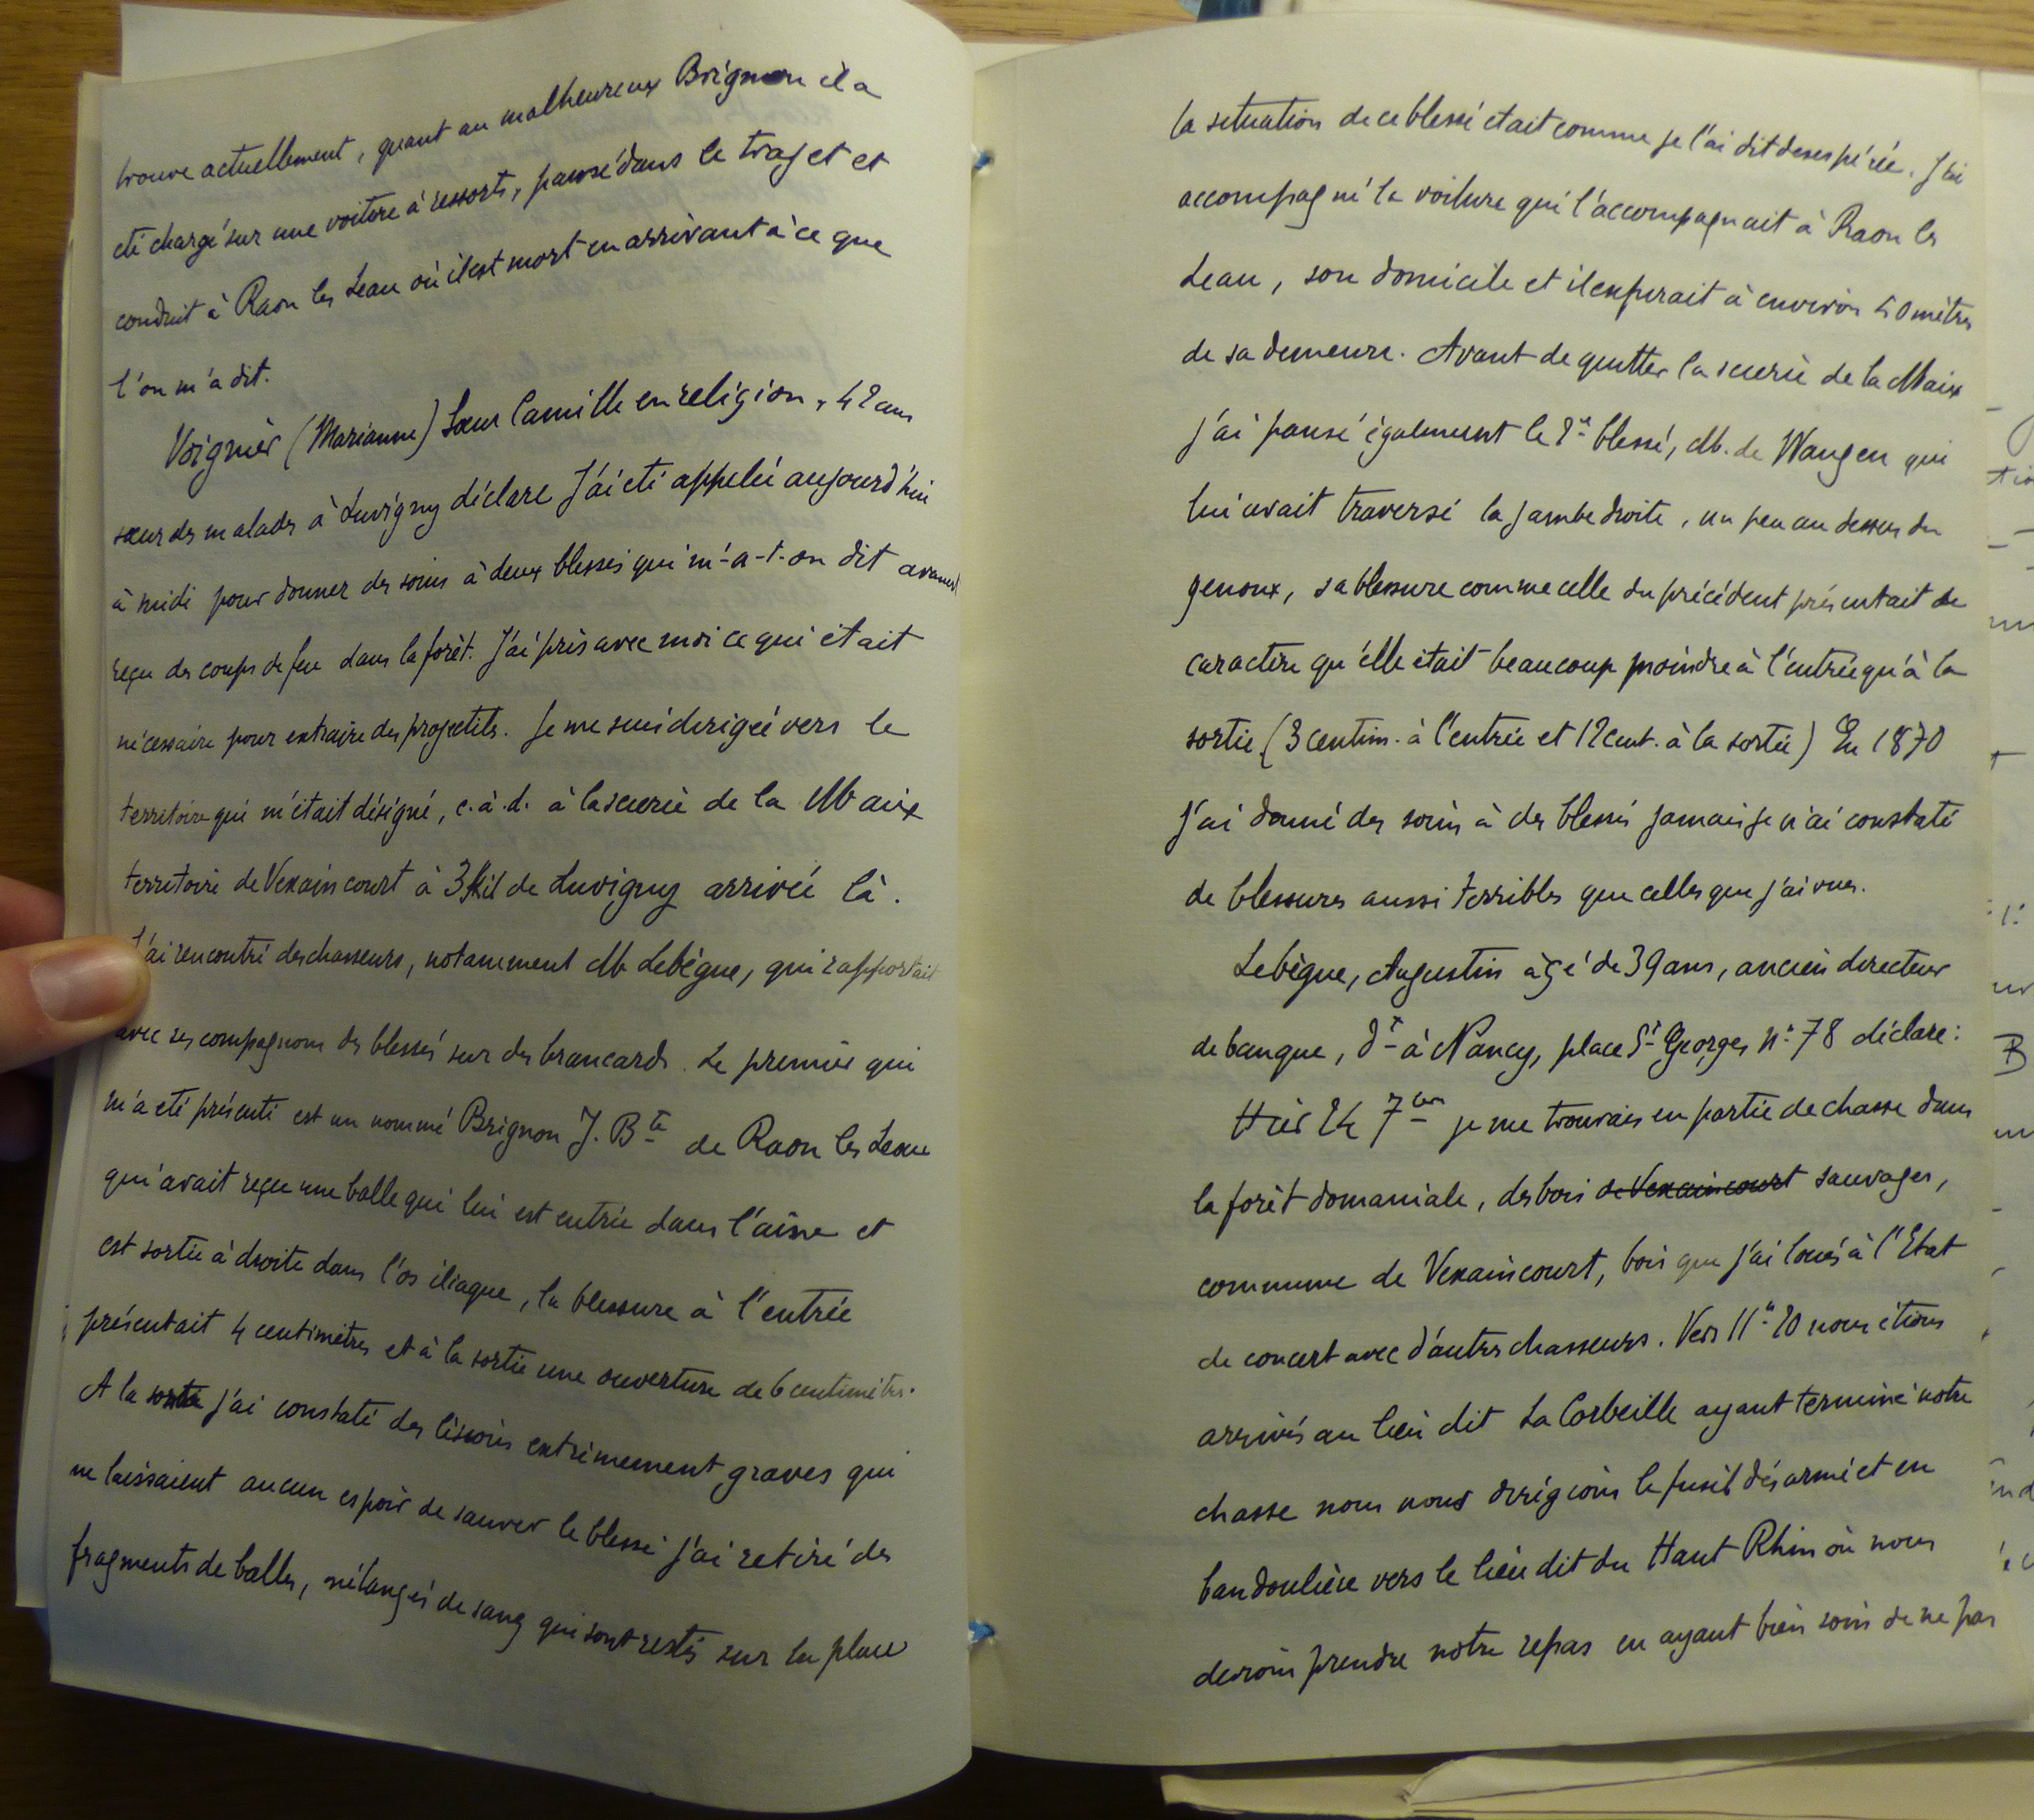 trouve actuellement, quant au malheureux Brignon il a
été chargé sur une voiture à ressorts, pansé dans le trajet et
conduit à Raon les Leau où il est mort en arrivant à ce que
l'on m'a dit.
Voignier (Marianne) Sœur Camille en religion, 42 ans
sœur des malades à Luvigny déclare J'ai été appelée aujourd'hui
à midi pour donner des soins à deux blessés qui m'-a-t-on dit avaient
reçu des coups de feu dans la forêt. J'ai pris avec moi ce qui était
nécessaire pour extraire des projectils. Je me suis dirigée vers le
territoire qui m'était désigné, c.à.d. à la scierie de la Maix
territoire de Vexaincourt à 3 Kil de Luvigny arrivée là.
J'ai rencontré des chasseurs, notamment M. Lebègue, qui rapportait
avec ses compagnons des blessés sur des brancards. Le premier qui
m'a été présenté est un nommé Brignon J. Bte de Raon les Leau
qui avait reçu une balle qui lui est entrée dans l'aîne et
est sortie à droite dans l'os iliaque, la blessure à l'entrée
présentait 4 centimètres et à la sortie une ouverture de 6 centimètres.
A la sortie j'ai constaté des lésions extrêmement graves qui
ne laissaient aucun espoir de sauver le blessé j'ai retiré des
fragments de balles, mélangés de sang qui sont restés sur la place
la situation de ce blessé était comme je l'ai dit desespérée. J'ai
accompagné la voiture qui l'accompagnait à Raon les
Leau, son domicile et il expirait à environ 50 mètres
de sa demeure. Avant de quitter la scierie de la Maix
j'ai pansé également le 2e blessé, M. de Wangen qui
lui avait traversé la jambe droite, un peu au dessus du
genoux, sa blessure comme celle du précédent présentait de
caractère qu'elle était beaucoup moindre à l'entrée qu'à la
sortie (3 centim. à l'entrée et 12 cent. à la sortie) En 1870
j'ai donné des soins à des blessés jamais je n'ai constaté
de blessures aussi terribles que celles que j'ai vues.
Lebègue, Augustin âgé de 39 ans, ancien directeur
de banque, dt à Nancy, place St Georges n° 78 déclare :
Hier 24 7bre je me trouvais en partie de chasse dans
la forêt domaniale, des bois de Vexaincourt sauvages,
commune de Vexaincourt, bois que j'ai loués à l'Etat
de concert avec d'autres chasseurs. Vers 11h 20 nous étions
arrivés au lieu dit La Corbeille ayant terminé notre
chasse nous nous dirigions le fusil désarmé et en
bandoulière vers le lieu dit du Haut Rhin où nous
devions prendre notre repas en ayant bien soin de ne pas